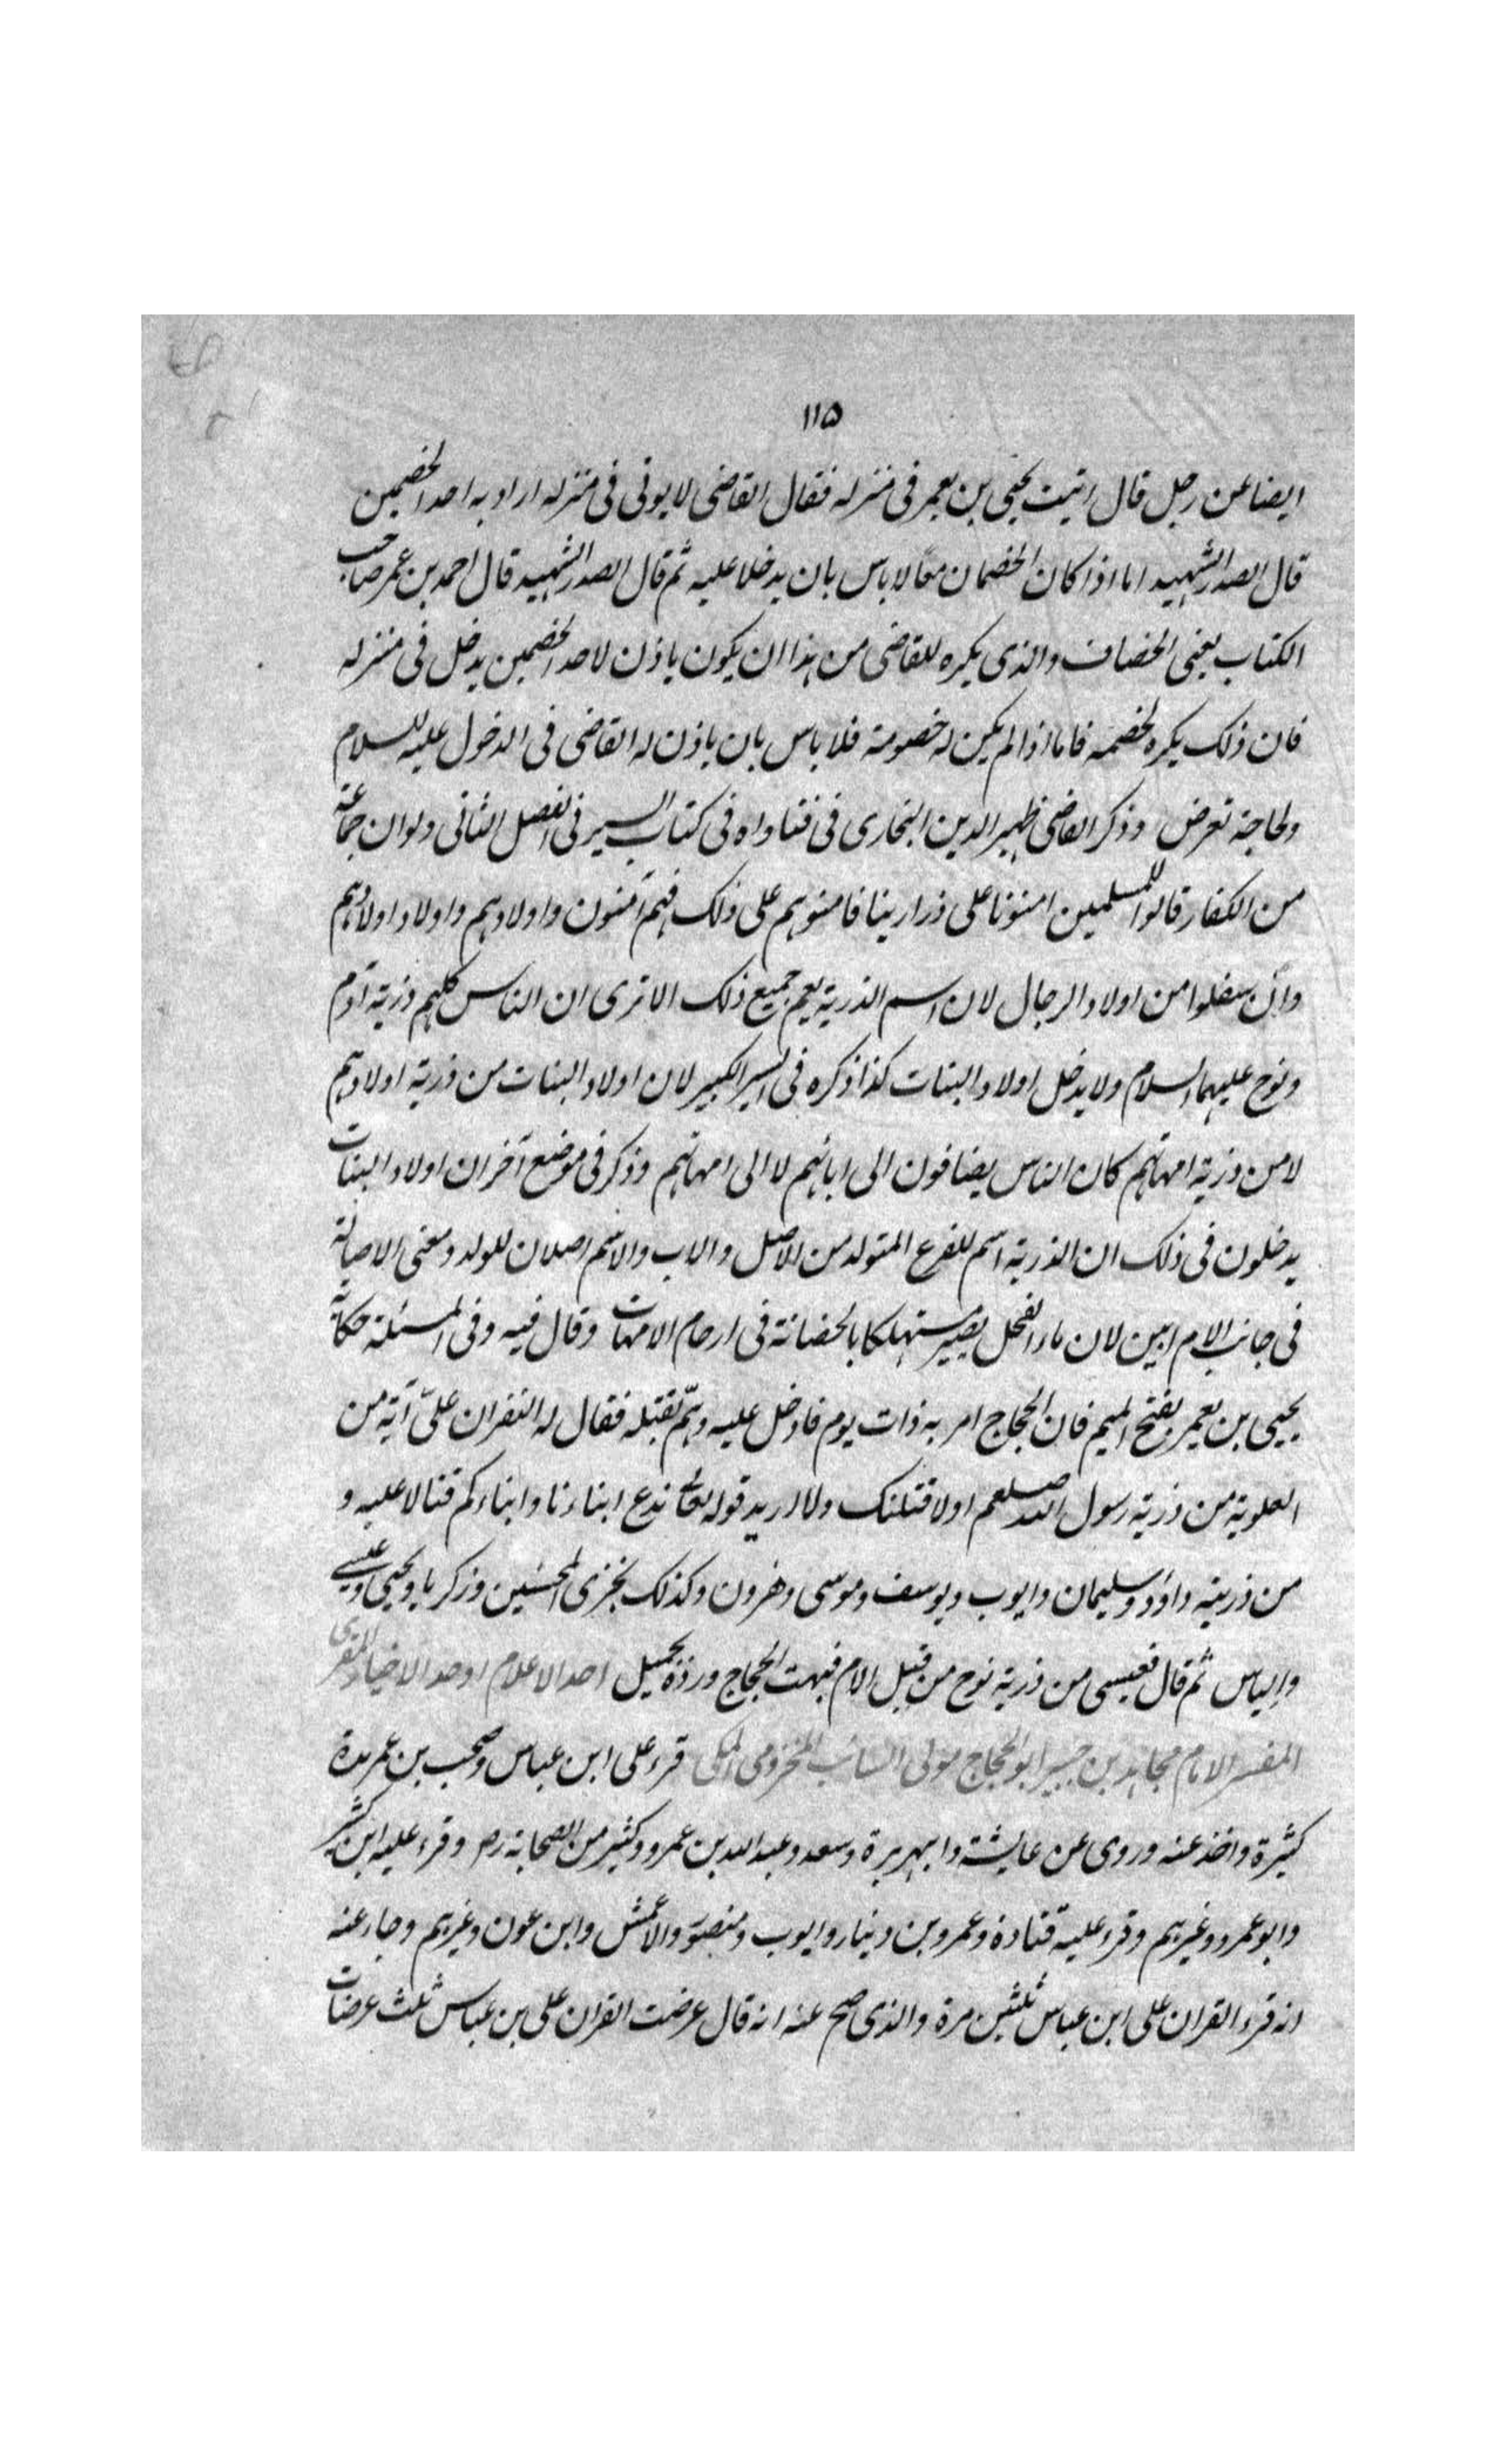 ١١٥
ايضا عن رجل قال اتيت يحيى بن يعمر فى منزله فقال القاضى لا يوتى فى منزله اراد به احد الخصمين
قال الصدر الشهيد اما اذا كان الخصمان معًا لا باس بان يدخلا عليه ثم قال الصدر الشهيد قال احمد بن عمر صاحب
الكتاب يعنى الخصاف والذى يكره للقاضى من هذا ان يكون ياذن لاحد الخصمين يدخل فى منزله
فان ذلك يكره لخصمه فاما اذا لم يكن له خصومة فلا باس بان ياذن له القاضى فى الدخول عليه للسلام
ولحاجة تعرض وذكر القاضى ظهير الدين البخارى فى فتاواه فى كتاب السير فى الفصل الثانى ولو ان جماعة
من الكفار قالوا للمسلمين امنونا على ذرارينا فامنوهم على ذلك فهم آمنون واولادهم واولاد اولادهم
وان سفلوا من اولاد الرجال لان اسم الذرية يعم جميع ذلك الا ترى ان الناس كلهم ذرية آدم
ونوح عليهما السلام ولا يدخل اولاد البنات كذا ذكره فى السير الكبير لان اولاد البنات من ذرية اولادهم
لا من ذرية امهاتهم كان الناس يضافون الى ابائهم لا الى امهاتهم وذكر فى موضع آخر ان اولاد البنات
يدخلون فى ذلك ان الذرية اسم للفرع المتولد من الاصل والاب والام اصلان للولد ومعنى الاصالة
فى جانب الام ابين لان ماء الفحل يصير مستهلكا بالحضانة فى ارحام الامهات وقال فيه وفى المسئلة حكاية
يحيى بن يعمر بفتح الميم فان الحجاج امر به ذات يوم فادخل عليه وهمّ بقتله فقال له التقران علىّ آية من
العلوية من ذرية رسول الله صلعم اولا قتلنك ولا اريد قوله تعالى ندع ابناءنا وابناءكم فتلا عليه و
من ذريته داود وسليمان وايوب ويوسف وموسى وهرون وكذلك نجزى المحسنين وزكريا ويحيى وعيسى
والياس ثم قال فعيسى من ذرية نوح من قبل الام فبهت الحجاج ورده بجميل احد الاعلام اوحد الاخيار المقرى
المفسر الامام مجاهد بن جبير ابو الحجاج مولى السائب المخزومى المكى قرء على ابن عباس وصحب بن عمر مدة
كثيرة واخذ عنه وروى عن عايشة وابيهريرة وسعد وعبد الله بن عمرو وكثير من الصحابة رض وقرء عليه ابن كثير
وابو عمرو وغيرهم وقرء عليه قتادة وعمرو بن دينار وايوب ومنصور والاعمش وابن عون وغيرهم وجاء عنه
انه قرء القران على ابن عباس ثلثين مرة والذى صح عنه انه قال عرضت القران على بن عباس ثلث عرضات